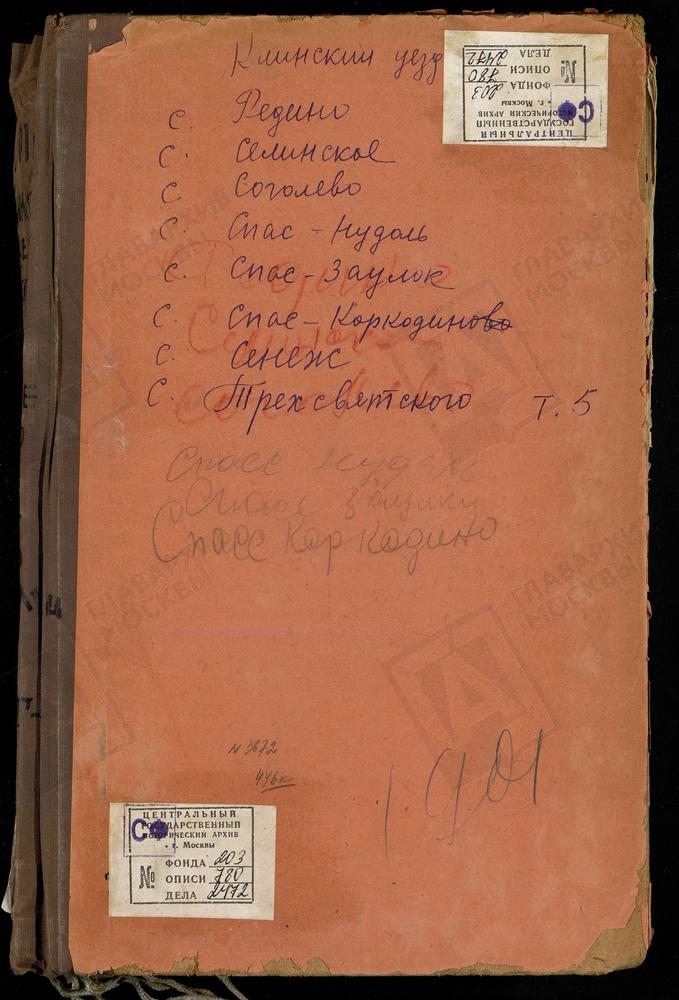 Клинский уезд
с. Редино
с. Селинское
с. Соголево
с. Спас-Нудоль
с. Спас-Заулок
с. Спас-Коркодиново
с. Сенеж
с. Трехсвятского т. 5
Спасс Нудаль
Спасс Коркодино
N 3672
446к
1901
ЦЕНТРАЛЬНЫЙ
ГОСУДАРСТВЕННЫЙ
ИСТОРИЧЕСКИЙ АРХИВ
г. Москвы
СФ
№
ФОНДА 203
ОПИСИ 780
ДЕЛА 2472
ЦЕНТРАЛЬНЫЙ
ГОСУДАРСТВЕННЫЙ
ИСТОРИЧЕСКИЙ АРХИВ
г. Москвы
СФ
№
ФОНДА 203
ОПИСИ 780
ДЕЛА 2472
ГЛАВАРХИВ
МОСКВЫ
ГЛАВАРХИВ
МОСКВЫ
ГЛАВАРХИВ
МОСКВЫ
ГЛАВАРХИВ
МОСКВЫ